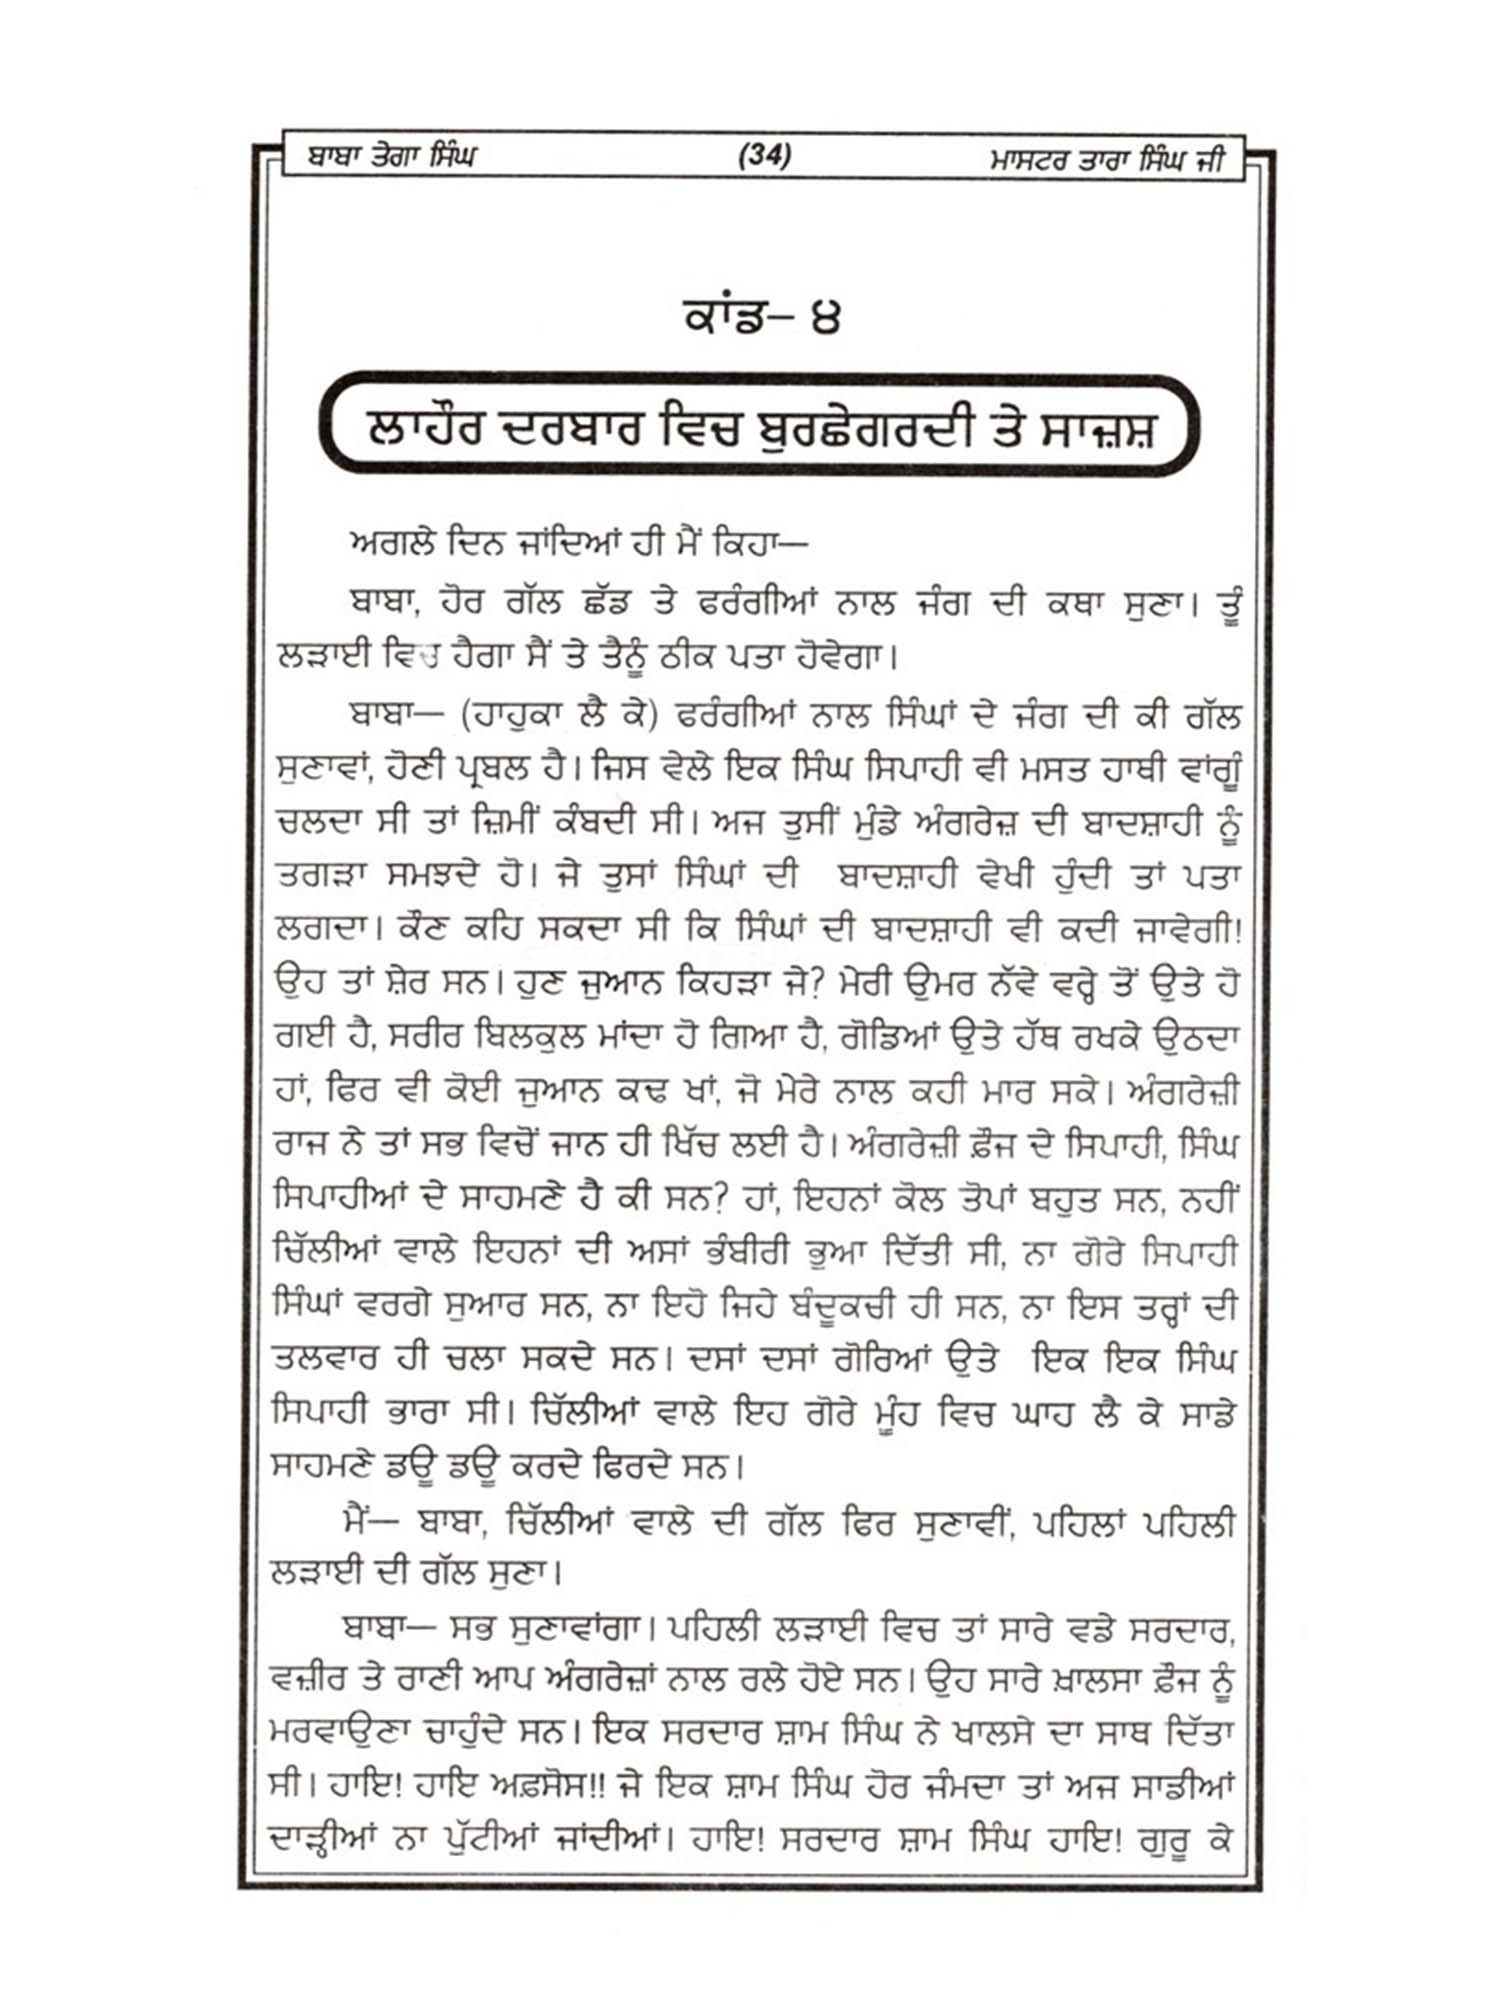 ਬਾਬਾ ਤੇਗਾ ਸਿੰਘ (34) ਮਾਸਟਰ ਤਾਰਾ ਸਿੰਘ ਜੀ
ਕਾਂਡ– ੪
ਲਾਹੌਰ ਦਰਬਾਰ ਵਿਚ ਬੁਰਛੇਗਰਦੀ ਤੇ ਸਾਜ਼ਸ਼
ਅਗਲੇ ਦਿਨ ਜਾਂਦਿਆਂ ਹੀ ਮੈਂ ਕਿਹਾ—
ਬਾਬਾ, ਹੋਰ ਗੱਲ ਛੱਡ ਤੇ ਫਰੰਗੀਆਂ ਨਾਲ ਜੰਗ ਦੀ ਕਥਾ ਸੁਣਾ। ਤੂੰ
ਲੜਾਈ ਵਿਚ ਹੈਗਾ ਸੈਂ ਤੇ ਤੈਨੂੰ ਠੀਕ ਪਤਾ ਹੋਵੇਗਾ।
ਬਾਬਾ— (ਹਾਹੁਕਾ ਲੈ ਕੇ) ਫਰੰਗੀਆਂ ਨਾਲ ਸਿੰਘਾਂ ਦੇ ਜੰਗ ਦੀ ਕੀ ਗੱਲ
ਸੁਣਾਵਾਂ, ਹੋਣੀ ਪ੍ਰਬਲ ਹੈ। ਜਿਸ ਵੇਲੇ ਇਕ ਸਿੰਘ ਸਿਪਾਹੀ ਵੀ ਮਸਤ ਹਾਥੀ ਵਾਂਗੂੰ
ਚਲਦਾ ਸੀ ਤਾਂ ਜ਼ਿਮੀਂ ਕੰਬਦੀ ਸੀ। ਅਜ ਤੁਸੀਂ ਮੁੰਡੇ ਅੰਗਰੇਜ਼ ਦੀ ਬਾਦਸ਼ਾਹੀ ਨੂੰ
ਤਗੜਾ ਸਮਝਦੇ ਹੋ। ਜੇ ਤੁਸਾਂ ਸਿੰਘਾਂ ਦੀ ਬਾਦਸ਼ਾਹੀ ਵੇਖੀ ਹੁੰਦੀ ਤਾਂ ਪਤਾ
ਲਗਦਾ। ਕੌਣ ਕਹਿ ਸਕਦਾ ਸੀ ਕਿ ਸਿੰਘਾਂ ਦੀ ਬਾਦਸ਼ਾਹੀ ਵੀ ਕਦੀ ਜਾਵੇਗੀ!
ਉਹ ਤਾਂ ਸ਼ੇਰ ਸਨ। ਹੁਣ ਜੁਆਨ ਕਿਹੜਾ ਜੇ? ਮੇਰੀ ਉਮਰ ਨੱਵੇ ਵਰ੍ਹੇ ਤੋਂ ਉਤੇ ਹੋ
ਗਈ ਹੈ, ਸਰੀਰ ਬਿਲਕੁਲ ਮਾਂਦਾ ਹੋ ਗਿਆ ਹੈ, ਗੋਡਿਆਂ ਉਤੇ ਹੱਥ ਰਖਕੇ ਉਠਦਾ
ਹਾਂ, ਫਿਰ ਵੀ ਕੋਈ ਜੁਆਨ ਕਢ ਖਾਂ, ਜੋ ਮੇਰੇ ਨਾਲ ਕਹੀ ਮਾਰ ਸਕੇ। ਅੰਗਰੇਜ਼ੀ
ਰਾਜ ਨੇ ਤਾਂ ਸਭ ਵਿਚੋਂ ਜਾਨ ਹੀ ਖਿੱਚ ਲਈ ਹੈ। ਅੰਗਰੇਜ਼ੀ ਫ਼ੌਜ ਦੇ ਸਿਪਾਹੀ, ਸਿੰਘ
ਸਿਪਾਹੀਆਂ ਦੇ ਸਾਹਮਣੇ ਹੈ ਕੀ ਸਨ? ਹਾਂ, ਇਹਨਾਂ ਕੋਲ ਤੋਪਾਂ ਬਹੁਤ ਸਨ, ਨਹੀਂ
ਚਿੱਲੀਆਂ ਵਾਲੇ ਇਹਨਾਂ ਦੀ ਅਸਾਂ ਭੰਬੀਰੀ ਭੁਆ ਦਿੱਤੀ ਸੀ, ਨਾ ਗੋਰੇ ਸਿਪਾਹੀ
ਸਿੰਘਾਂ ਵਰਗੇ ਸੁਆਰ ਸਨ, ਨਾ ਇਹੋ ਜਿਹੇ ਬੰਦੂਕਚੀ ਹੀ ਸਨ, ਨਾ ਇਸ ਤਰ੍ਹਾਂ ਦੀ
ਤਲਵਾਰ ਹੀ ਚਲਾ ਸਕਦੇ ਸਨ। ਦਸਾਂ ਦਸਾਂ ਗੋਰਿਆਂ ਉਤੇ ਇਕ ਇਕ ਸਿੰਘ
ਸਿਪਾਹੀ ਭਾਰਾ ਸੀ। ਚਿੱਲੀਆਂ ਵਾਲੇ ਇਹ ਗੋਰੇ ਮੂੰਹ ਵਿਚ ਘਾਹ ਲੈ ਕੇ ਸਾਡੇ
ਸਾਹਮਣੇ ਡਊ ਡਊ ਕਰਦੇ ਫਿਰਦੇ ਸਨ।
ਮੈਂ— ਬਾਬਾ, ਚਿੱਲੀਆਂ ਵਾਲੇ ਦੀ ਗੱਲ ਫਿਰ ਸੁਣਾਵੀਂ, ਪਹਿਲਾਂ ਪਹਿਲੀ
ਲੜਾਈ ਦੀ ਗੱਲ ਸੁਣਾ।
ਬਾਬਾ— ਸਭ ਸੁਣਾਵਾਂਗਾ। ਪਹਿਲੀ ਲੜਾਈ ਵਿਚ ਤਾਂ ਸਾਰੇ ਵਡੇ ਸਰਦਾਰ,
ਵਜ਼ੀਰ ਤੇ ਰਾਣੀ ਆਪ ਅੰਗਰੇਜ਼ਾਂ ਨਾਲ ਰਲੇ ਹੋਏ ਸਨ। ਉਹ ਸਾਰੇ ਖ਼ਾਲਸਾ ਫ਼ੌਜ ਨੂੰ
ਮਰਵਾਉਣਾ ਚਾਹੁੰਦੇ ਸਨ। ਇਕ ਸਰਦਾਰ ਸ਼ਾਮ ਸਿੰਘ ਨੇ ਖਾਲਸੇ ਦਾ ਸਾਥ ਦਿੱਤਾ
ਸੀ। ਹਾਇ! ਹਾਇ ਅਫ਼ਸੋਸ!! ਜੇ ਇਕ ਸ਼ਾਮ ਸਿੰਘ ਹੋਰ ਜੰਮਦਾ ਤਾਂ ਅਜ ਸਾਡੀਆਂ
ਦਾੜ੍ਹੀਆਂ ਨਾ ਪੁੱਟੀਆਂ ਜਾਂਦੀਆਂ। ਹਾਇ! ਸਰਦਾਰ ਸ਼ਾਮ ਸਿੰਘ ਹਾਇ! ਗੁਰੂ ਕੇ